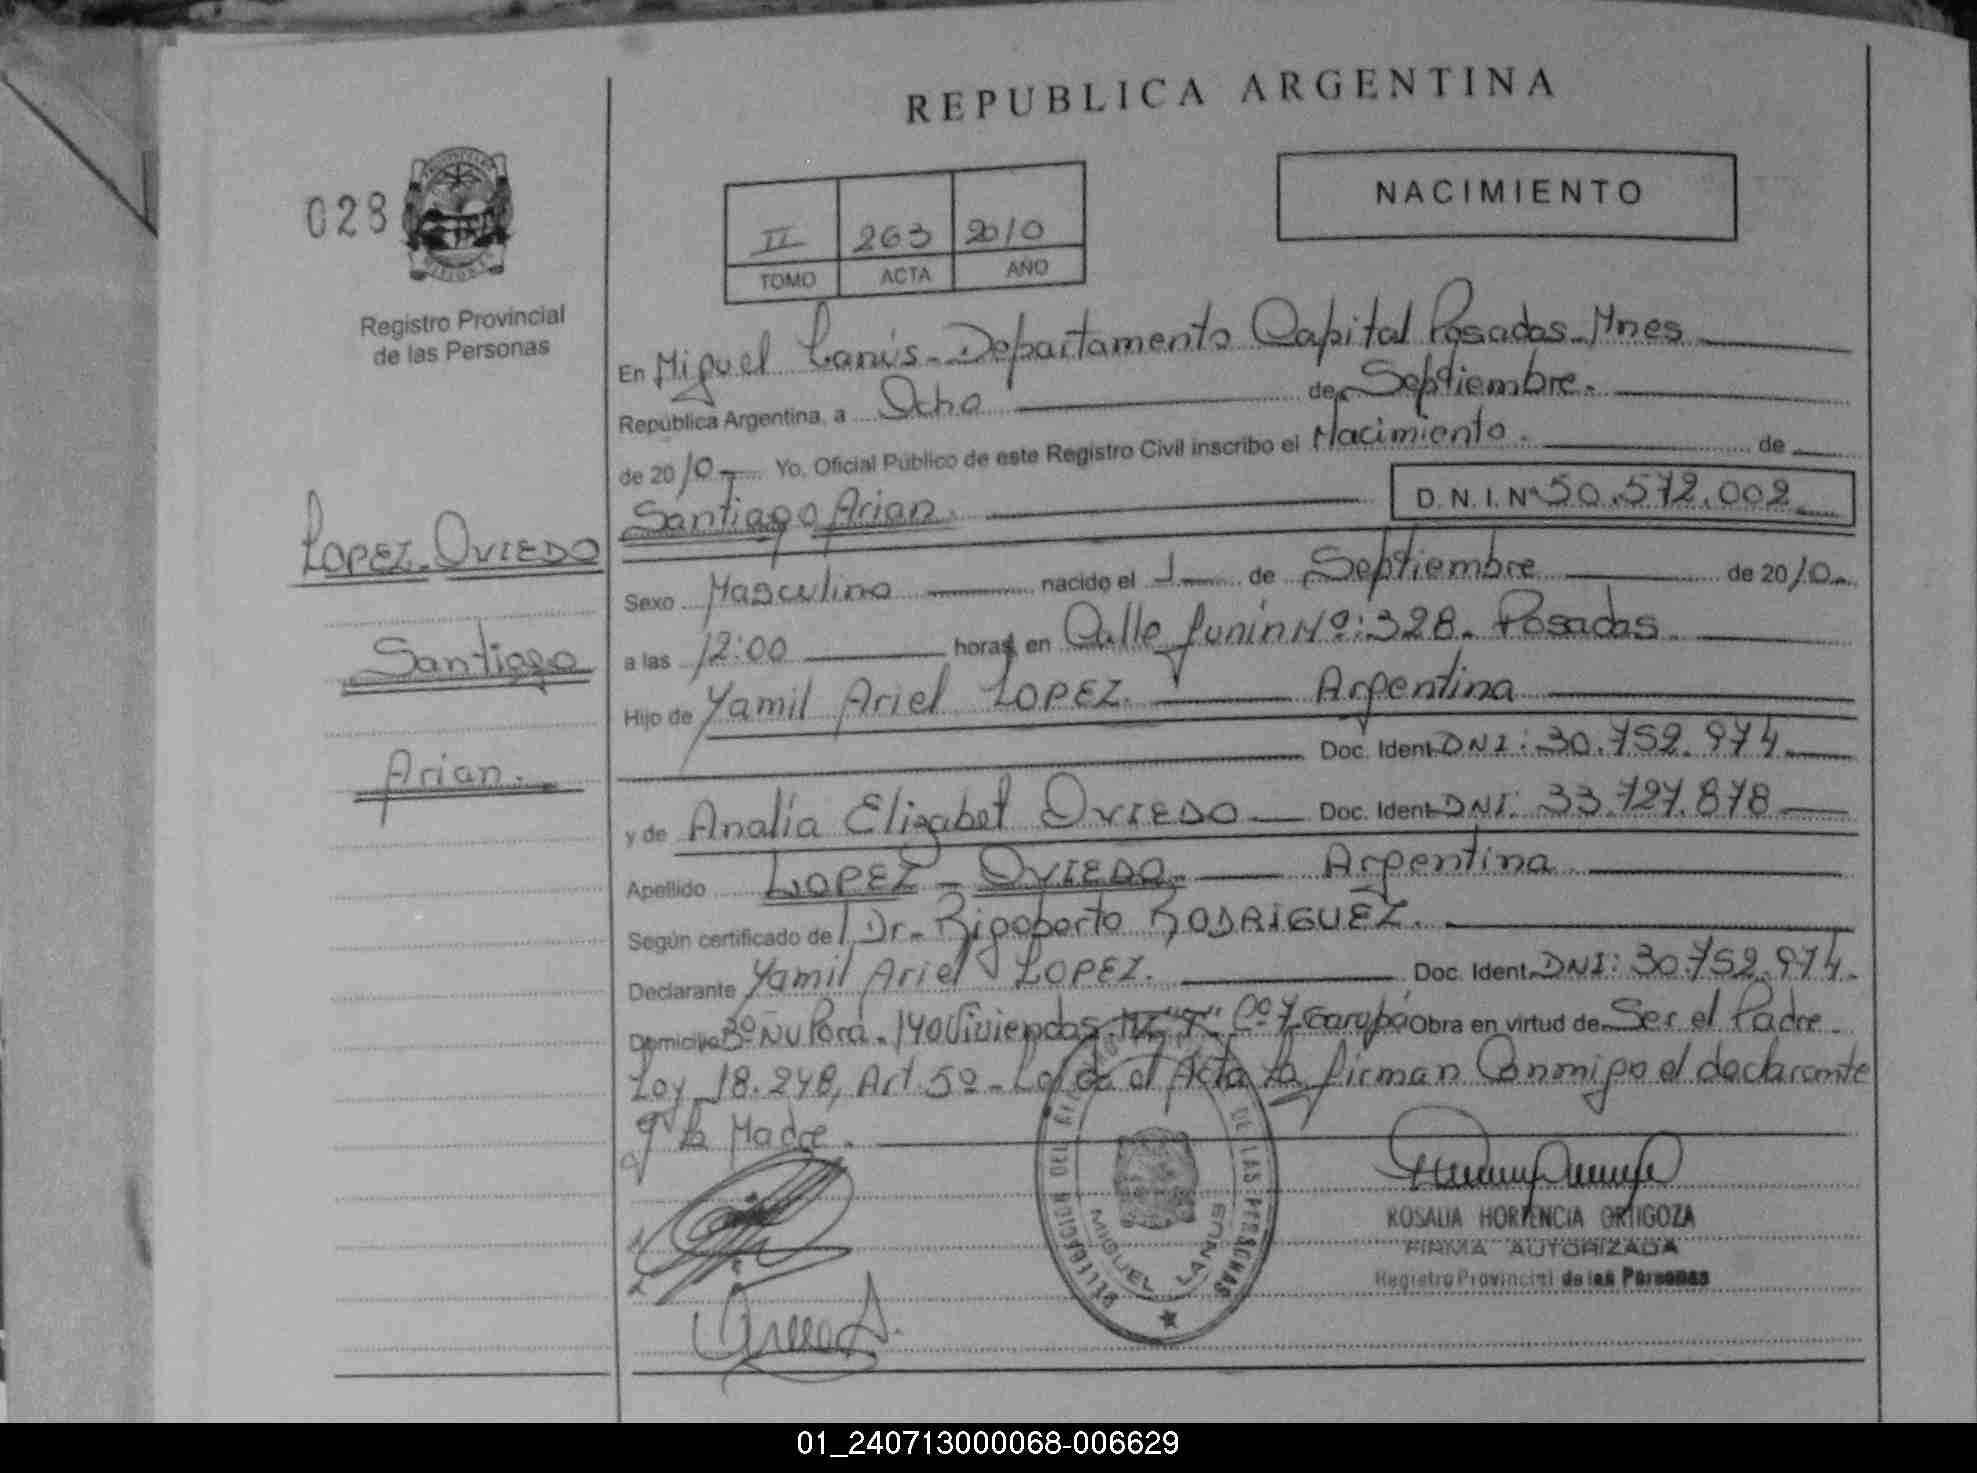 REPUBLICA ARGENTINA
028
NACIMIENTO
II 263 2010
TOMO ACTA AÑO
Registro Provincial
de las Personas
En Miguel Lanús - Departamento Capital Posadas - Mnes
República Argentina, a Ocho de Septiembre.
de 2010 Yo, Oficial Público de este Registro Civil inscribo el Nacimiento. de
Santiago Arian. D.N.I. Nº 50.572.002
LOPEZ - OVIEDO
Santiago
Arian.
Sexo Masculino nacido el 1 de Septiembre de 2010
a las 12:00 horas en Calle Junín Nº: 328. Posadas.
Hijo de Yamil Ariel LOPEZ. Argentina
Doc. Ident. DNI: 30.752.974
y de Analía Elizabet OVIEDO Doc. Ident. DNI: 33.727.878
Apellido LOPEZ - OVIEDO. Argentina
Según certificado del Dr. Rigoberto RODRIGUEZ.
Declarante Yamil Ariel LOPEZ. Doc. Ident. DNI: 30.752.974.
Domicilio Bº Ñu Porá. 140 Viviendas Cº 7 Garupá Obra en virtud de Ser el Padre.
Ley 18.248, Art 5º - el Acta la firman Conmigo el declarante
y la Madre.
DELEGACION DEL DE LAS PERSONAS
MIGUEL LANUS
ROSALIA HORTENCIA ORTIGOZA
FIRMA AUTORIZADA
Registro Provincial de las Personas
01_240713000068-006629